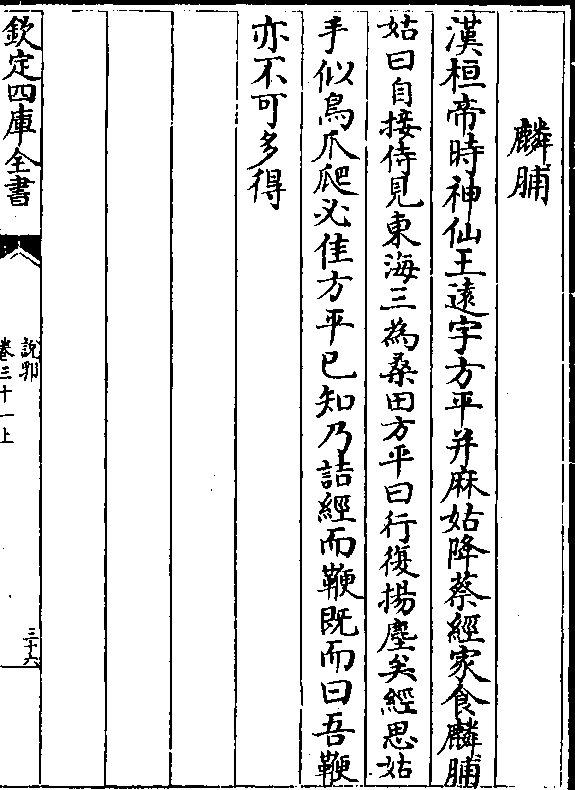 麟脯
漢桓帝時神仙王遠字方平并麻姑降蔡經家食麟脯
姑曰自接侍見東海三為桑田方平曰行復揚塵矣經思姑
手似鳥爪爬必佳方平已知乃詰經而鞭既而曰吾鞭
亦不可多得
欽定四庫全書
說郛
卷三十一上
三十六